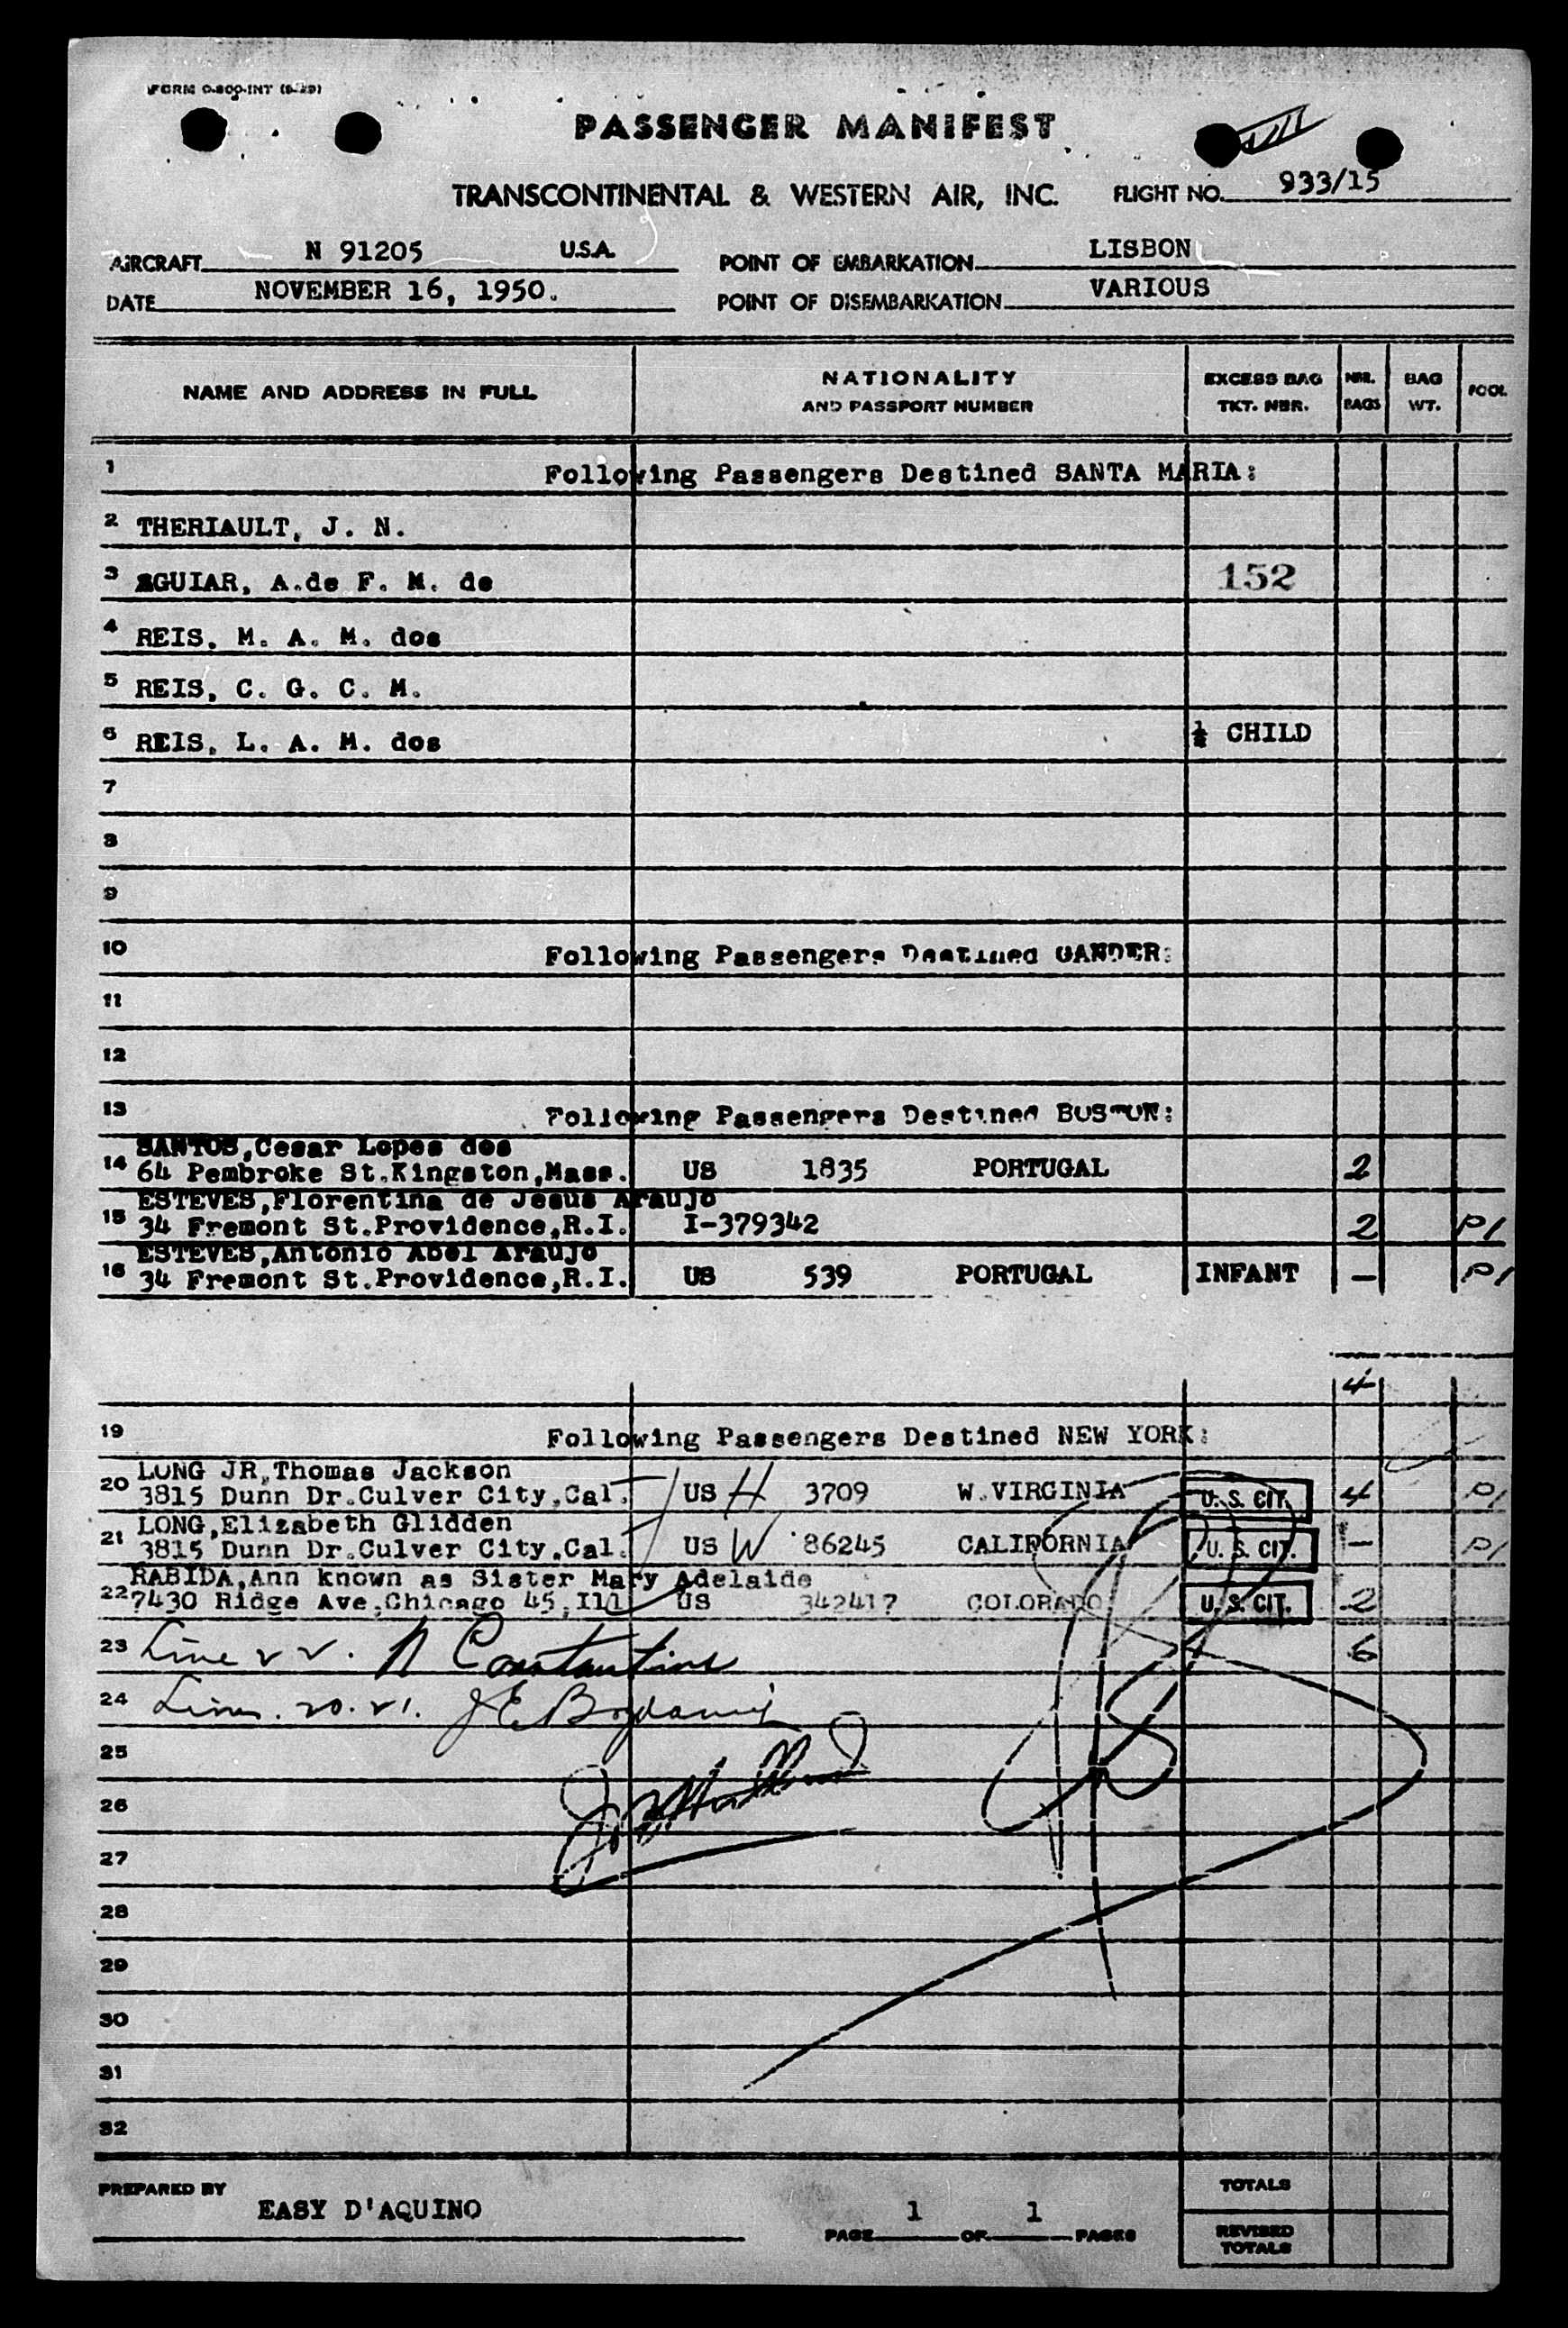 FORM O-800-INT
PASSENGER MANIFEST
TRANSCONTINENTAL & WESTERN AIR, INC. FLIGHT NO. 933/15
AIRCRAFT N 91205 U.S.A. POINT OF EMBARKATION LISBON
DATE NOVEMBER 16, 1950. POINT OF DISEMBARKATION VARIOUS
NAME AND ADDRESS IN FULL NATIONALITY AND PASSPORT NUMBER EXCESS BAG TKT. NBR. NBR. BAGS BAG WT. POOL
1 Following Passengers Destined SANTA MARIA:
2 THERIAULT, J. N.
3 AGUIAR, A.de F. M. de 152
4 REIS, M. A. M. dos
5 REIS, C. G. C. M.
6 REIS, L. A. M. dos ½ CHILD
7
8
9
10 Following Passengers Destined GANDER:
11
12
13 Following Passengers Destined BOSTON:
SANTOS,Cesar Lopes dos
14 64 Pembroke St.Kingston,Mass. US 1835 PORTUGAL 2
ESTEVES,Florentina de Jesus Araujo
15 34 Fremont St.Providence,R.I. I-379342 2 P1
ESTEVES,Antonio Abel Araujo
16 34 Fremont St.Providence,R.I. US 539 PORTUGAL INFANT — P1
4
19 Following Passengers Destined NEW YORK:
LONG JR,Thomas Jackson
20 3815 Dunn Dr.Culver City,Cal. US H 3709 W.VIRGINIA U. S. CIT. 4 P1
LONG,Elizabeth Glidden
21 3815 Dunn Dr.Culver City,Cal. US W 86245 CALIFORNIA U. S. CIT. — P1
RABIDA,Ann known as Sister Mary Adelaide
22 7430 Ridge Ave,Chicago 45,Ill US 342417 COLORADO U. S. CIT. 2
23 Line 22. N Constantine 6
24 Lines. 20. 21.
25
26
27
28
29
30
31
32
PREPARED BY EASY D'AQUINO PAGE 1 OF 1 PAGES
TOTALS
REVISED TOTALS